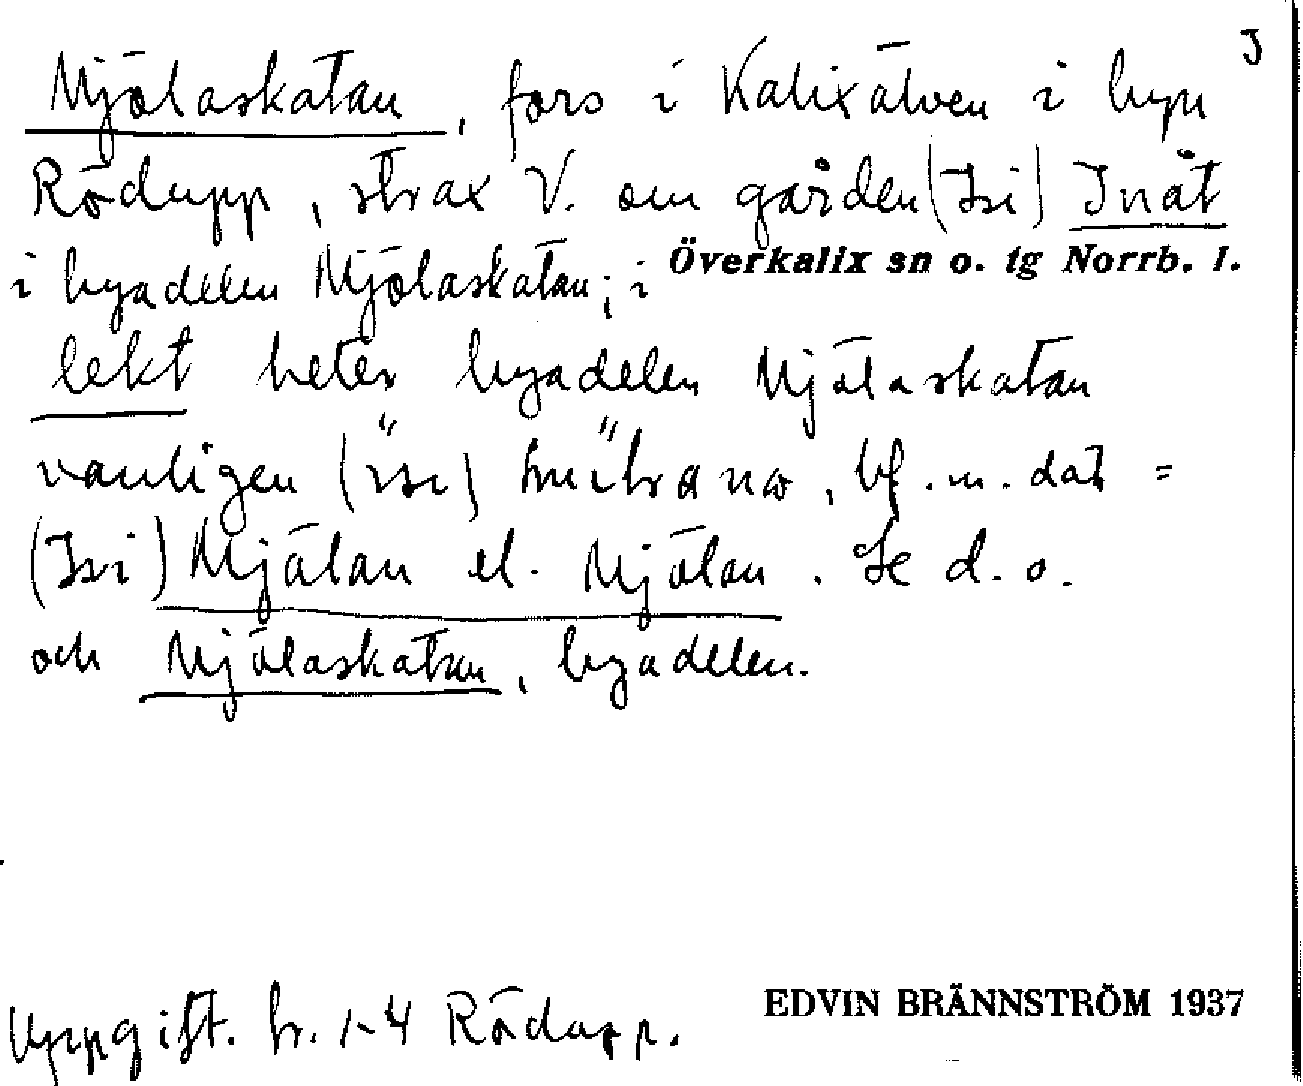 J
Mjölaskatan, fors i Kalixälven i byn
Rödupp, strax V. om gården (Isi) Inåt
i byadelen Mjölaskatan; i
Överkalix sn o. tg Norrb. l.
lekt heter byadelen Mjölaskatan
vanligen (isi) , bf. m. dat =
(Isi) Mjälan el. Mjölan. Se d. o.
och Mjölaskatan, byadelen.
Uppgift. fr. 1-4 Rödupp.
EDVIN BRÄNNSTRÖM 1937